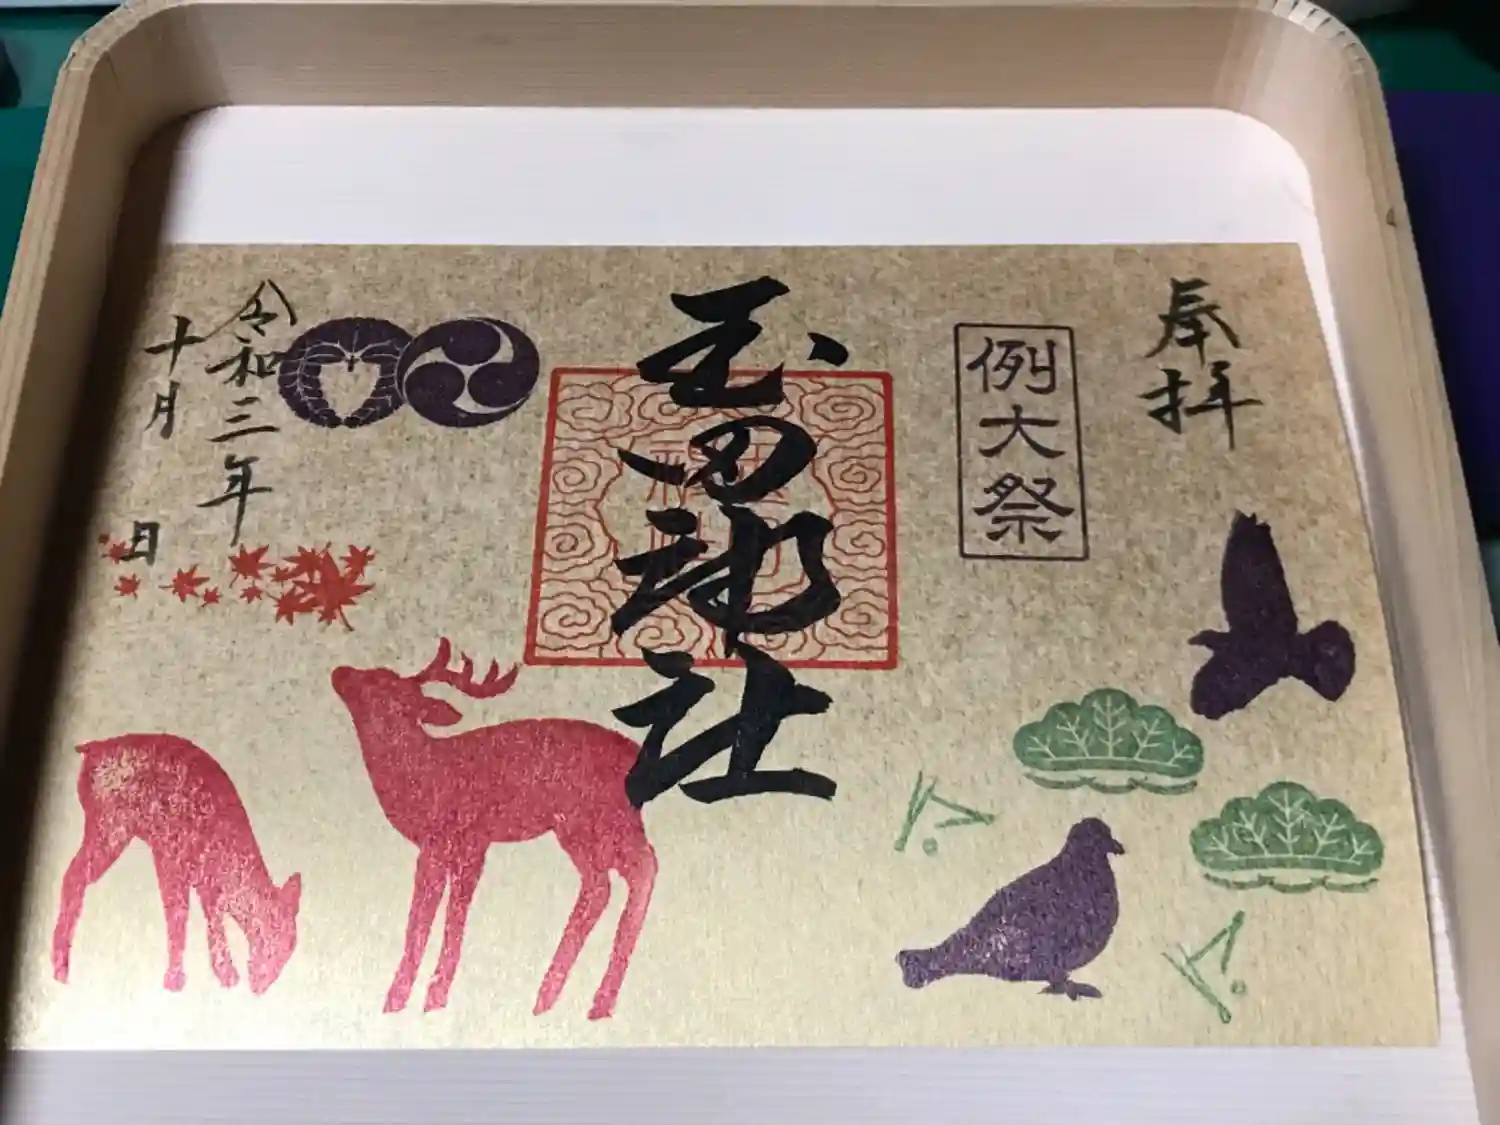 奉拝
例大祭
玉田神社
令和三年
十月　日